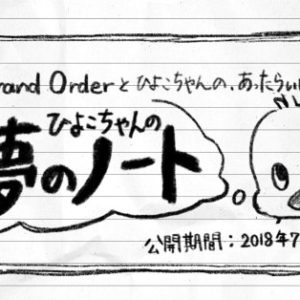 rand Orderとひよこちゃんの、あったらいい
ひよこちゃんの
夢のノート
公開期間：2018年7